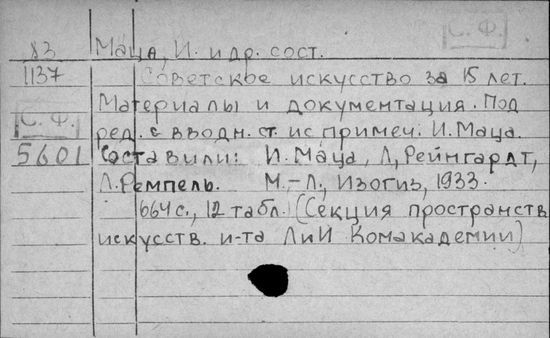 С. Ф.
83 Маца, И. и др. сост.
1137 Советское искусство за 15 лет.
Материалы и документация. Под
С. Ф. ред. с вводн. ст. и с примеч. И. Маца.
5601 Составили: И. Маца, Л. Рейнгардт,
Л. Ремпель. М.-Л., Изогиз, 1933.
664 с., 12 табл. (Секция пространств.
искусств. и-та ЛиИ Комакадемии)